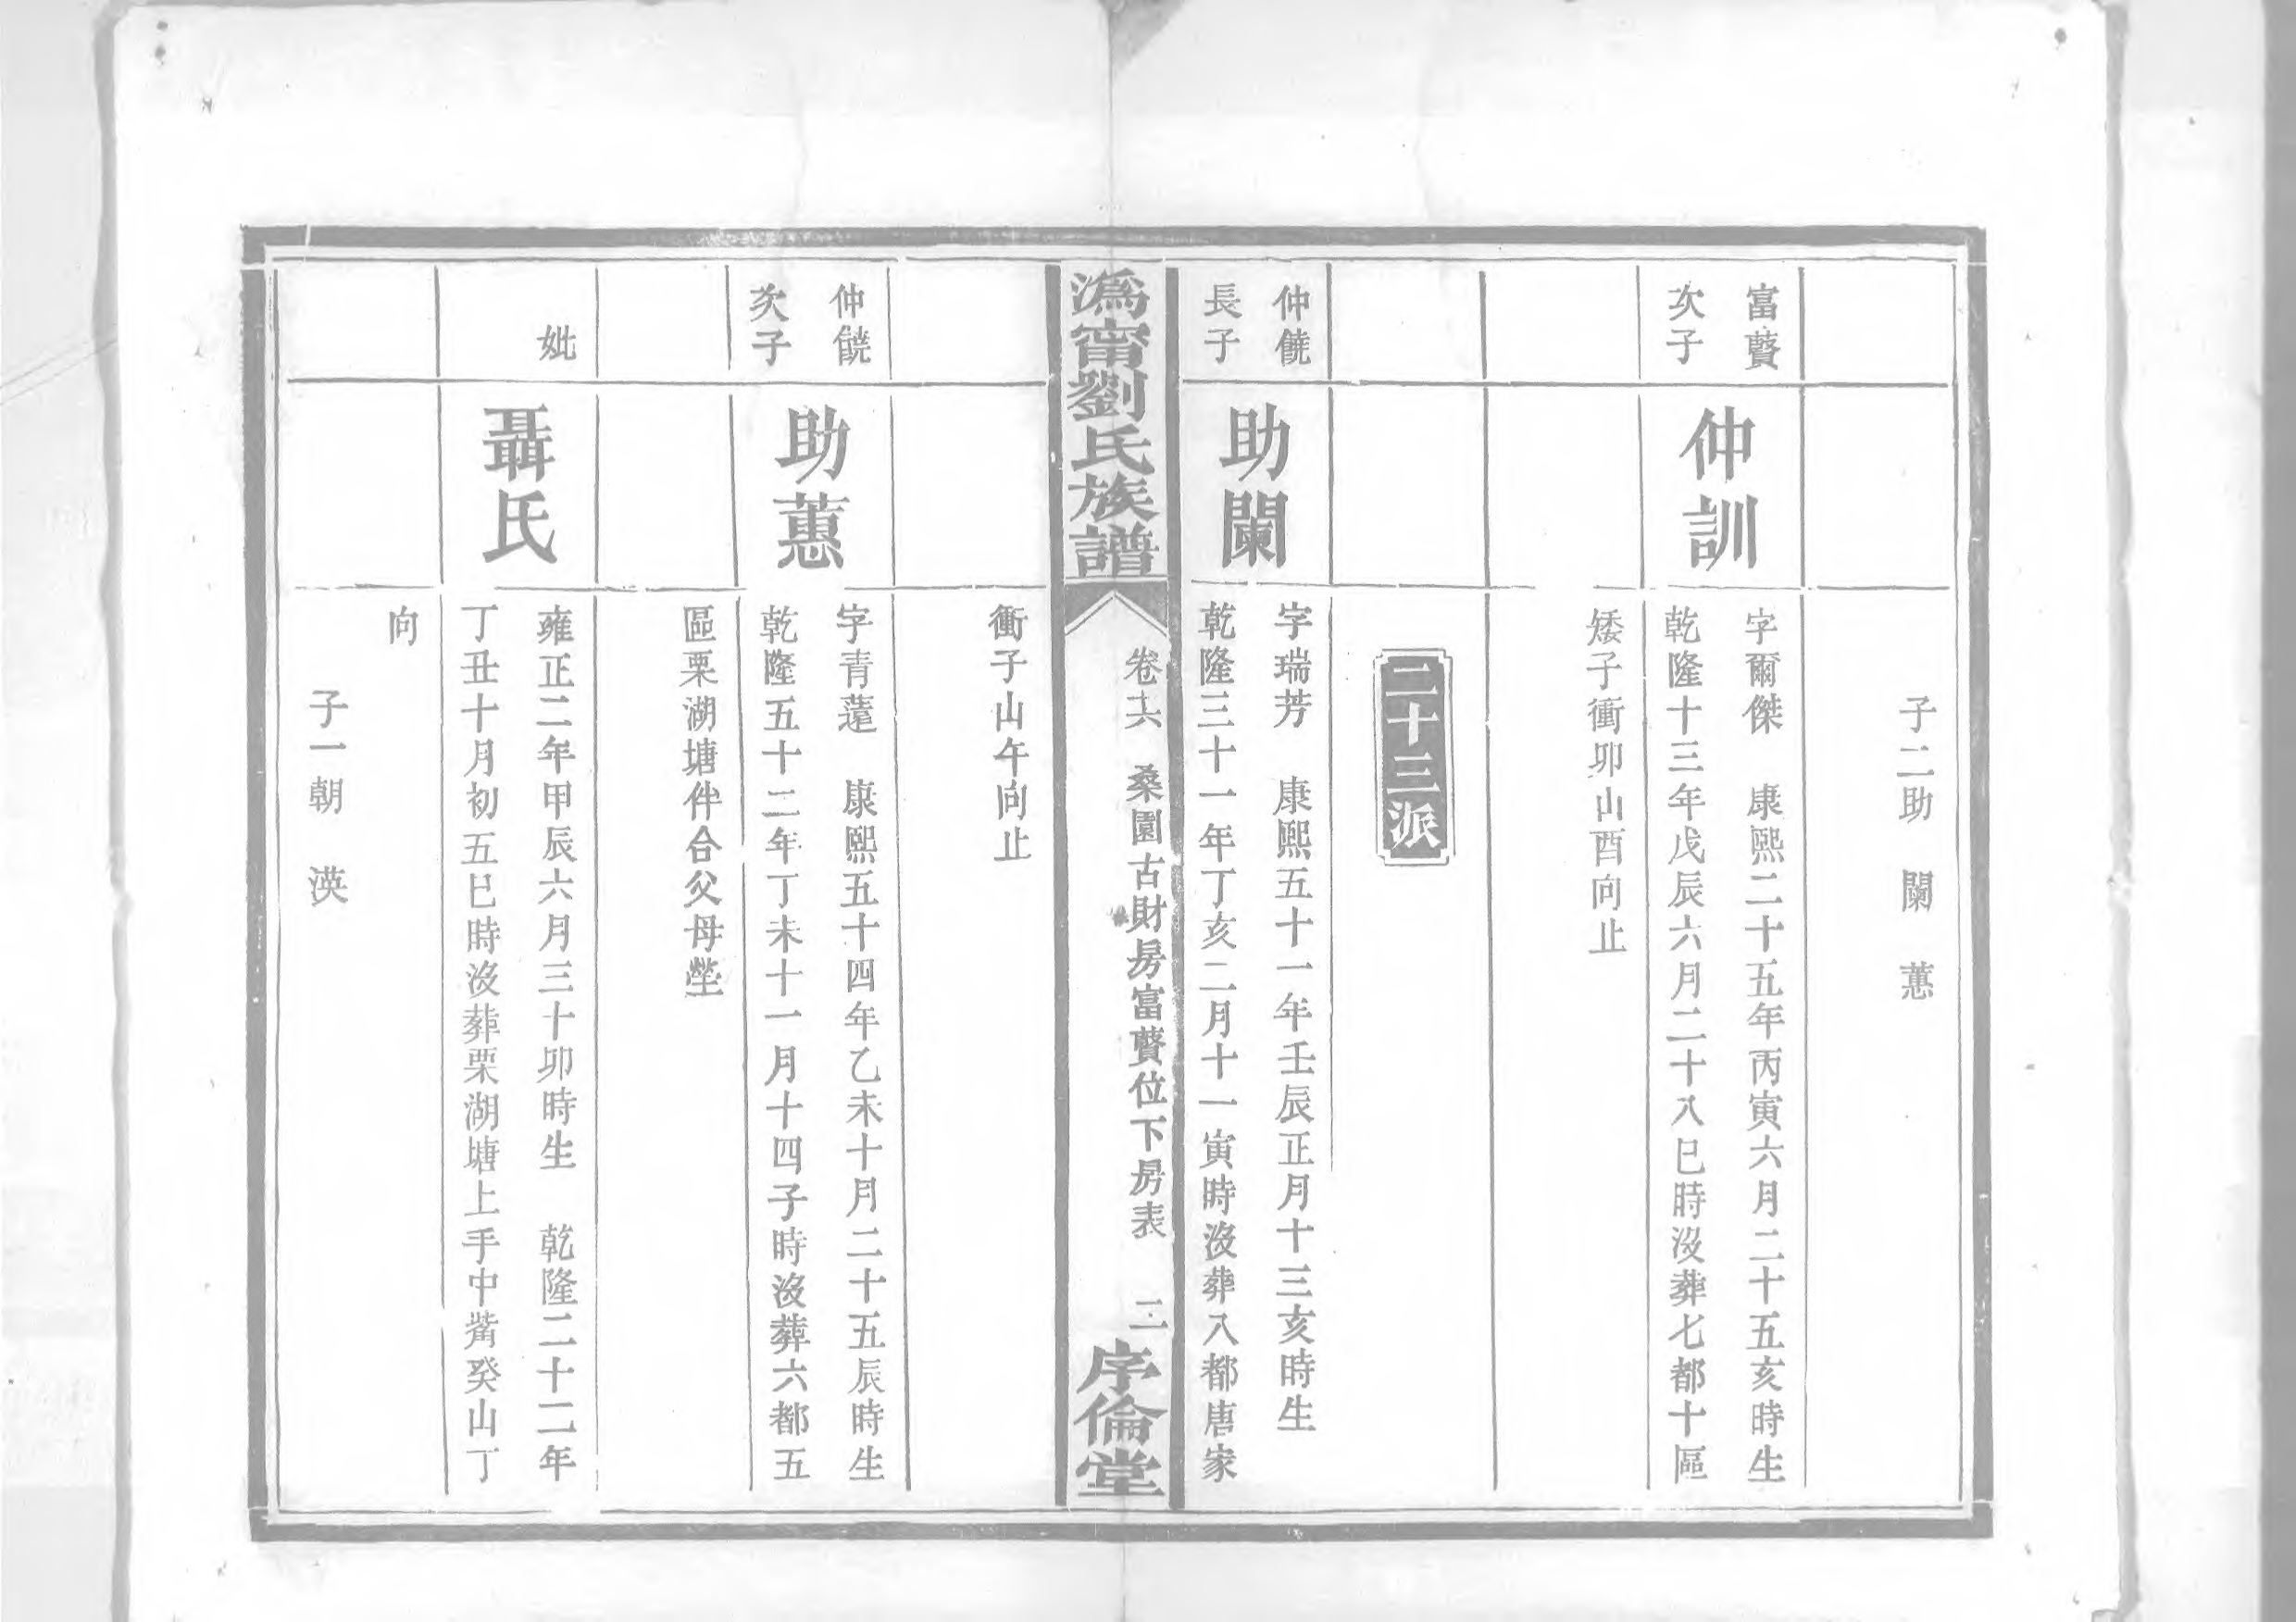 子二助 闌 蕙
富贇
次子
仲訓
字爾傑 康熙二十五年丙寅六月二十五亥時生
乾隆十三年戊辰六月二十八巳時沒葬七都十區
矮子衝卯山酉向止
二十三派
仲饒
長子
助闌
字瑞芳 康熙五十一年壬辰正月十三亥時生
乾隆三十一年丁亥二月十一寅時沒葬八都唐家
溈甯劉氏族譜
卷十六 桑園古財房富贇位下房表 二
序倫堂
衝子山午向止
仲饒
次子
助蕙
字青蓮 康熙五十四年乙未十月二十五辰時生
乾隆五十二年丁未十一月十四子時沒葬六都五
區栗湖塘伴合父母塋
妣
聶氏
雍正二年甲辰六月三十卯時生 乾隆二十二年
丁丑十月初五巳時沒葬栗湖塘上手中觜癸山丁
向
子一朝 渶